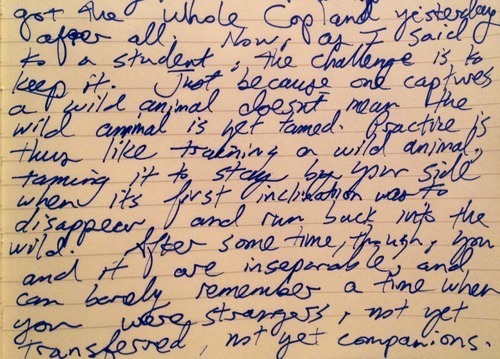 got the whole Copland yesterday
after all. Now, as I said
to a student, the challenge is to
keep it. Just because one captures
a wild animal doesnt mean the
wild animal is yet tamed. Practice is
thus like training a wild animal,
taming it to stay by your side
when its first inclination was to
disappear and run back into the
wild. After some time, though, you
and it are inseparable, and
can barely remember a time when
you were strangers, not yet
transferred, not yet companions.